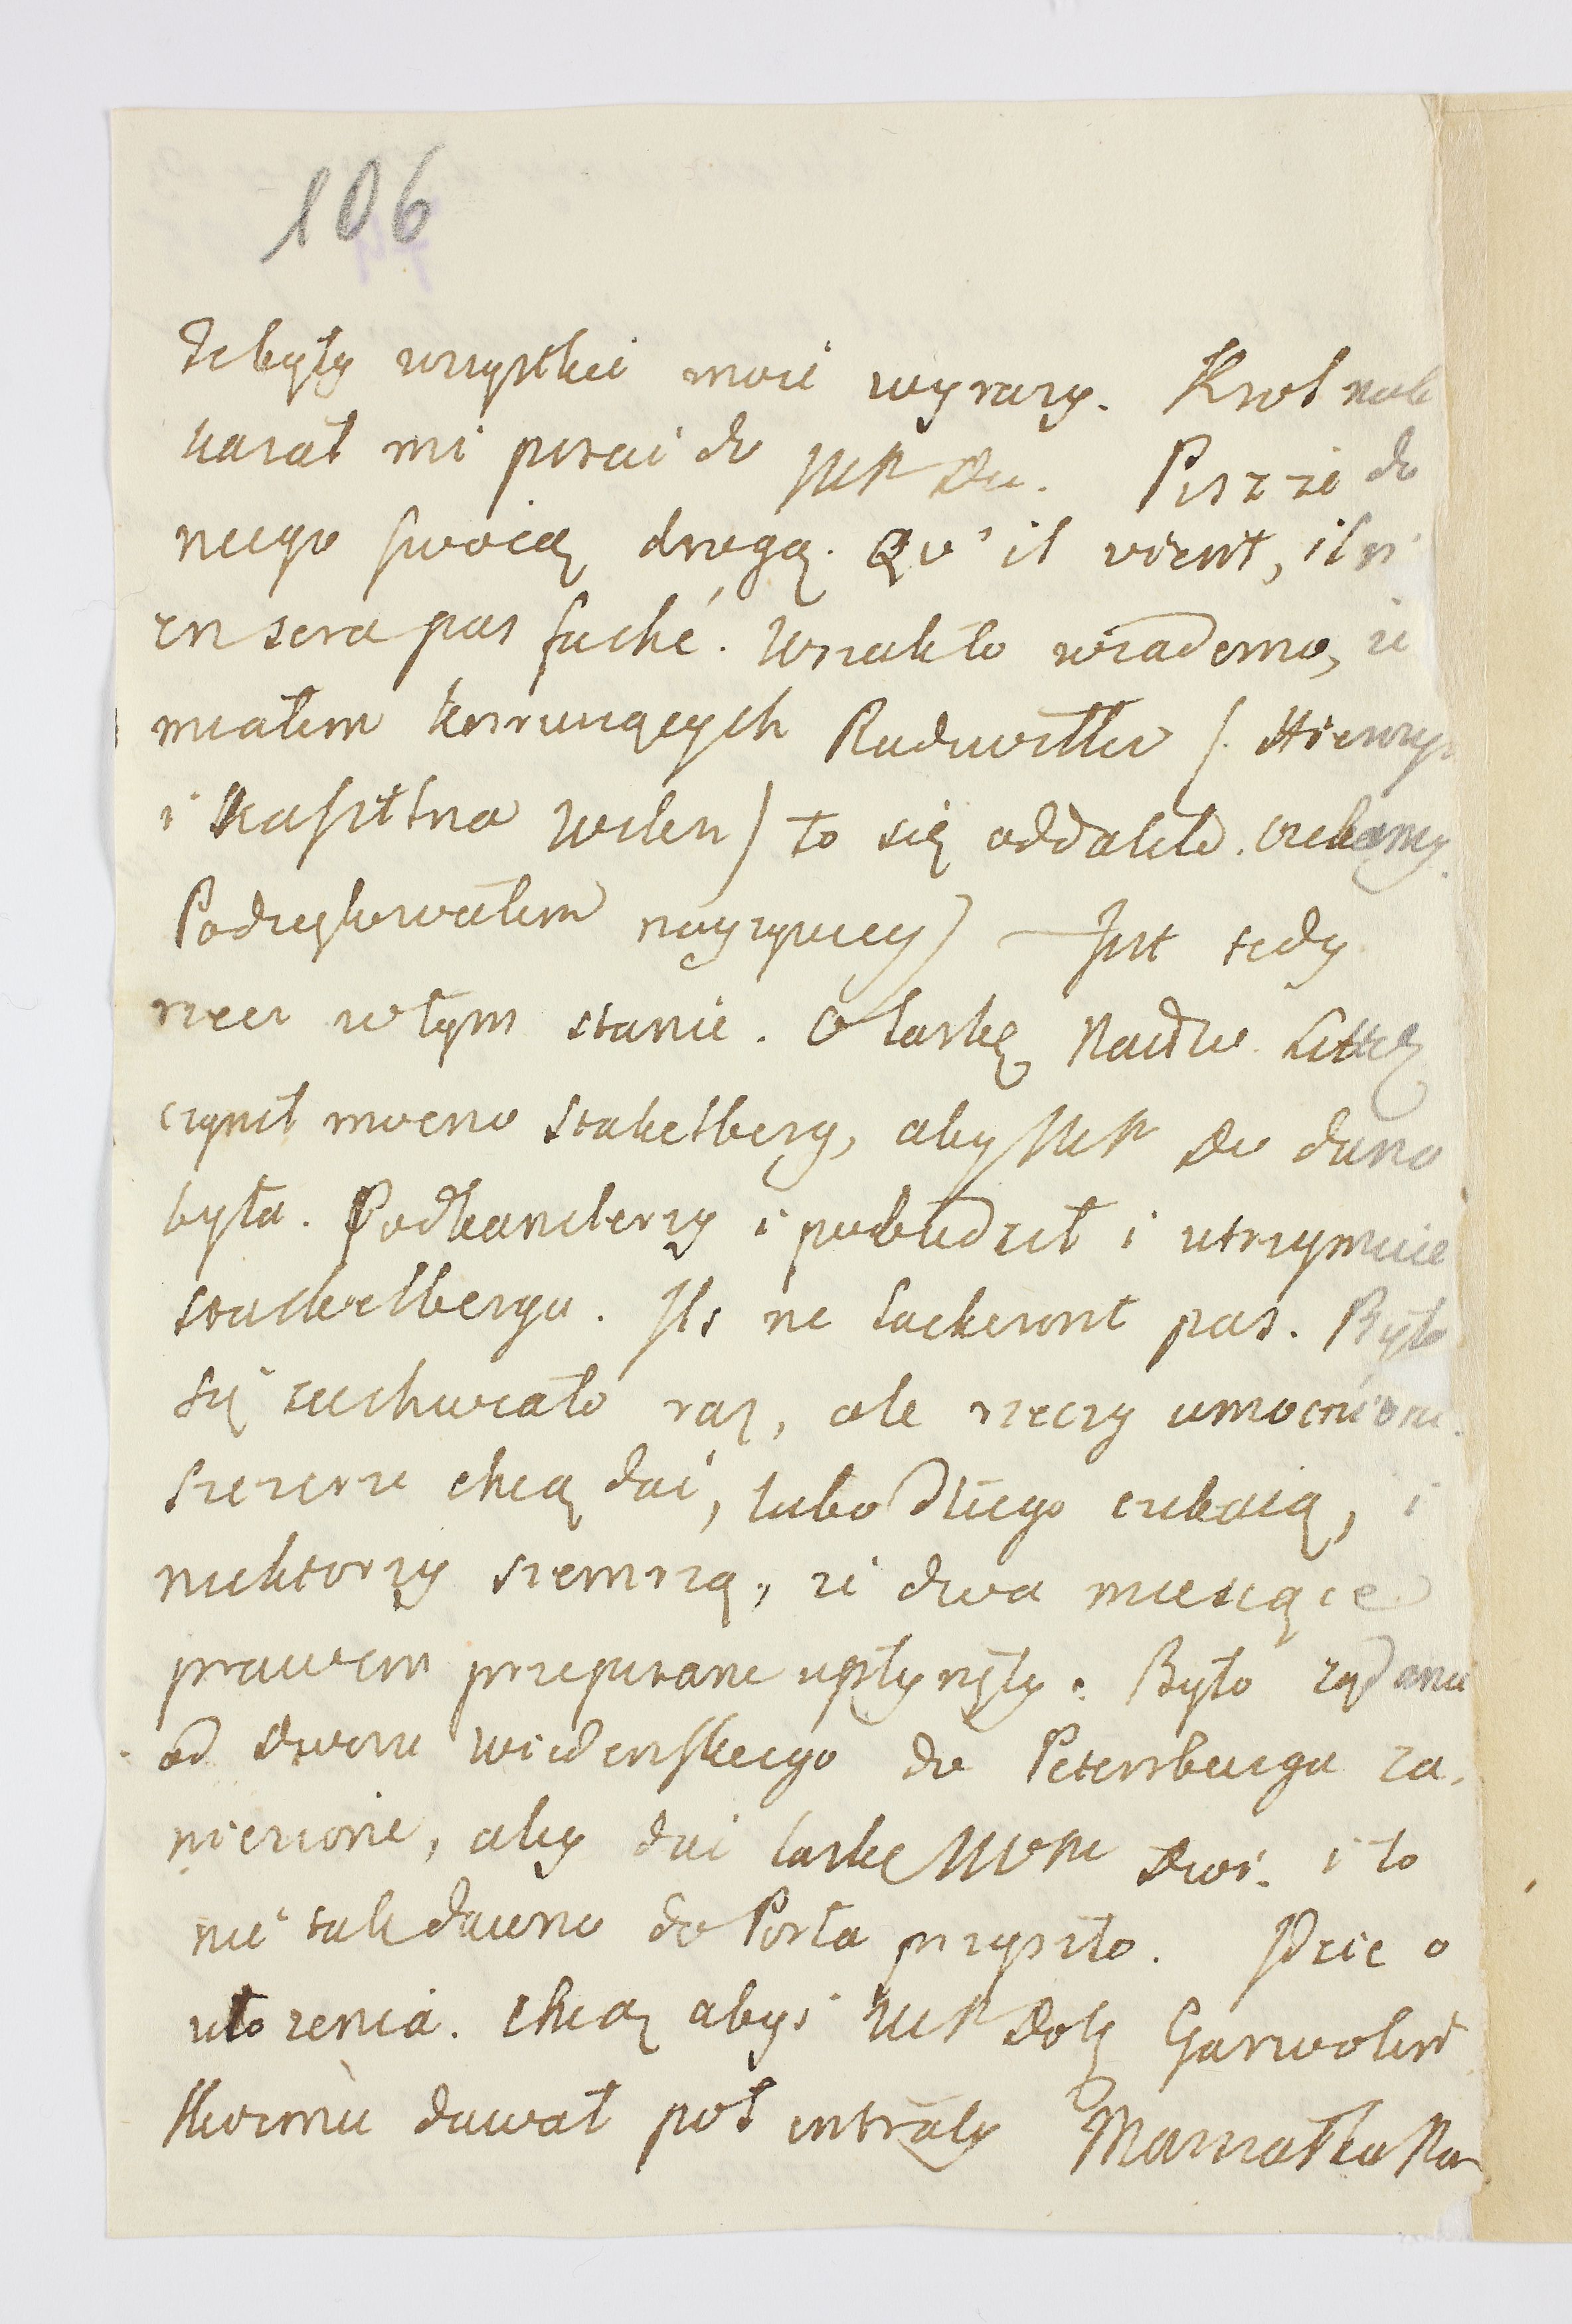 106
Te były wszystkie moie wyrazy. Krol nak
kazał mi pisać do WM Du. Piszże do
niego swoią drogą. Qu'il vient, il n'
en sera pas faché. Wszakto wiadomo, że
miałem kosruiących Radziwiłłów (. Hieronym
i Kasztlna Wilen) to się oddaliło. czekamy.
Podziękowałem nayżywiey) Jest tedy
rzecz w tym stanie. O laskę Nadw. Littę
czynił mocno Stakelberg, aby WM Du dana
była. Podkanclerzy i pobudził i utrzymuie
Stackelberga. Ils ne lacheront pas. Było
się zachwiało raz, ale rzeczy umocnione.
szczerze chcą dać, lubo długo czekaią, i
niektorzy szemrzą, że dwa miesiące
prawem przepisane upłynęły. Było żądanie
od Dworu Wiedenskiego do Petersburga za-
niesione, aby dać laskę WMPu Dwi. i to
nie tak dawno do Posła przyszło. Idzie o
ułożenia. Chcą abyś WM Dob Garwolin
skiemu dawał poł intraty Marszałka Na